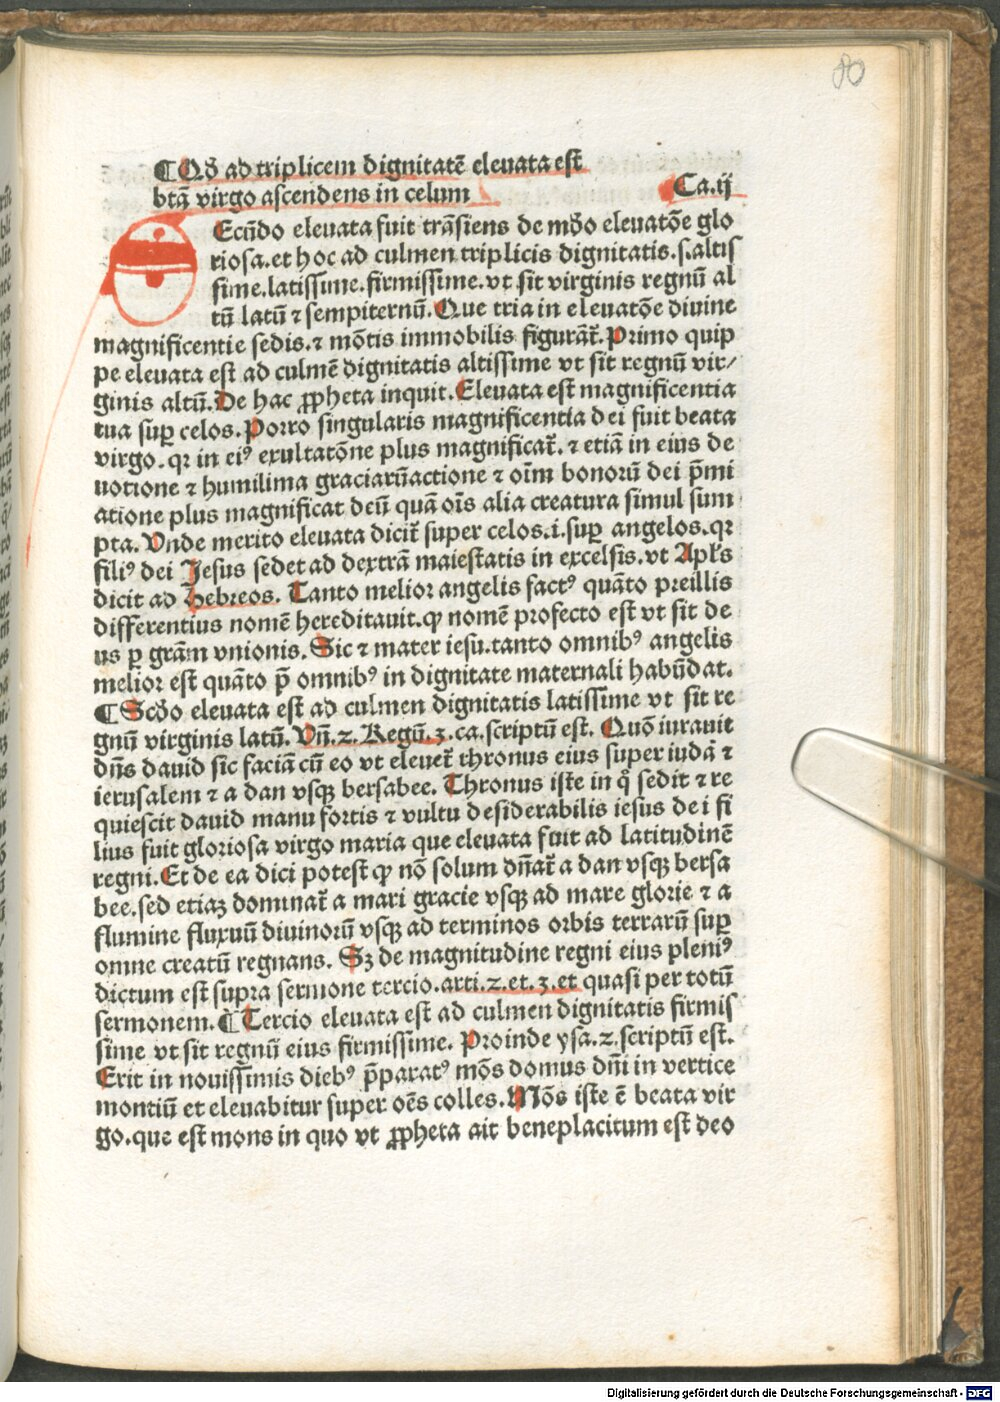 80
¶ Qď ad triplicem dignitatē eleuata est
btā virgo ascendens in celum Ca.ij
SEcūdo eleuata fuit trāsiens de mōo eleuatōe glo
riosa.et hoc ad culmen triplicis dignitatis.s.altis
sime.latissime.firmissime.vt sit virginis regnū al
tū latū ⁊ sempiternū.Que tria in eleuatōe diuine
magnificentie sedis.⁊ mōtis immobilis figurāt̄.Primo quip
pe eleuata est ad culmē dignitatis altissime vt sit regnū vir/
ginis altū.De hac ꝓpheta inquit.Eleuata est magnificentia
tua suꝑ celos.Porro singularis magnificentia dei fuit beata
virgo.qꝛ in eiꝰ exultatōne plus magnificat̄.⁊ etiā in eius de
uotione ⁊ humilima graciarūactione ⁊ oīm bonorū dei p̄mi
atione plus magnificat deū quā oīs alia creatura simul sum
pta.Vnde merito eleuata dicit̄ super celos.i.suꝑ angelos.qꝛ
filiꝰ dei Jesus sedet ad dextrā maiestatis in excelsis.vt Apl's
dicit ad Hebreos. Tanto melior angelis factꝰ quāto preillis
differentius nomē hereditauit.ꝙ nomē profecto est vt sit de
us ꝑ grām vnionis.Sic ⁊ mater iesu.tanto omnibꝰ angelis
melior est quāto p̄ omnibꝰ in dignitate maternali habūdat.
¶ Scďo eleuata est ad culmen dignitatis latissime vt sit re
gnū virginis latū. Vn̄.2.Regū.3.ca.scriptū est. Quō iurauit
dn̄s dauid sic faciā cū eo vt eleuet̄ thronus eius super iudā ⁊
ierusalem ⁊ a dan vsqꝫ bersabee. Thronus iste in q̊ sedit ⁊ re
quiescit dauid manu fortis ⁊ vultu desiderabilis iesus dei fi
lius fuit gloriosa virgo maria que eleuata fuit ad latitudinē
regni.Et de ea dici potest ꝙ nō solum dn̄at̄ a dan vsqꝫ bersa
bee.sed etiaꝫ dominat̄ a mari gracie vsqꝫ ad mare glorie ⁊ a
flumine fluxuū diuinorū vsqꝫ ad terminos orbis terrarū suꝑ
omne creatū regnans. Sꝫ de magnitudine regni eius pleniꝰ
dictum est supra sermone tercio.arti.2.et.3.et quasi per totū
sermonem.¶ Tercio eleuata est ad culmen dignitatis firmis
sime vt sit regnū eius firmissime. Proinde ysa.2.scriptū est.
Erit in nouissimis diebꝰ p̄paratꝰ mōs domus dn̄i in vertice
montiū et eleuabitur super oēs colles.Mōs iste ē beata vir
go.que est mons in quo vt ꝓpheta ait beneplacitum est deo
Digitalisierung gefördert durch die Deutsche Forschungsgemeinschaft - DFG